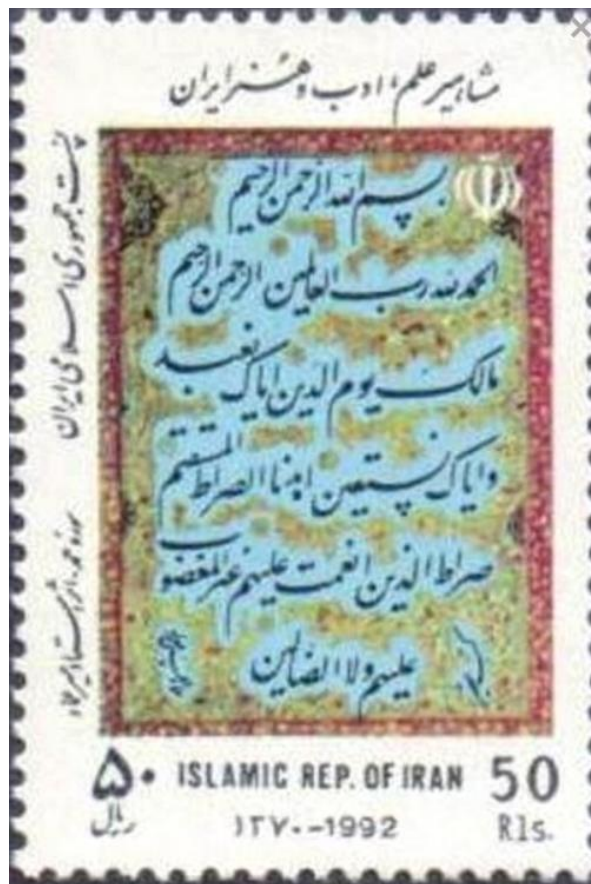 مشاهیر علم، ادب و هنر ایران
پست جمهوری اسلامی ایران
سوره حمد، اثر استاد میرعماد
بسم الله الرحمن الرحیم
الحمد لله رب العالمین الرحمن الرحیم
مالک یوم الدین ایاک نعبد
و ایاک نستعین اهدنا الصراط المستقیم
صراط الذین انعمت علیهم غیر المغضوب
علیهم ولا الضالین
۵۰ ISLAMIC REP. OF IRAN 50
ریال ۱۳۷۰-1992 Rls.